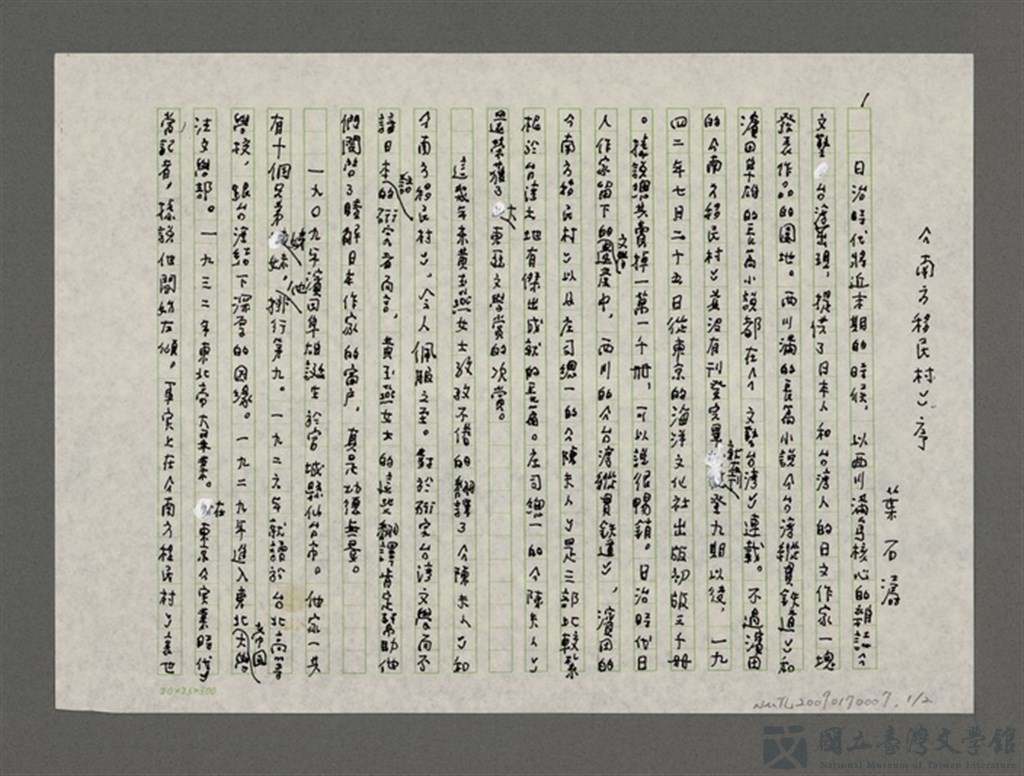 1
《南方移民村》序
葉石濤
日治時代將近末期的時候,以西川滿為核心的雜誌《
文藝台灣》出現,提供了日本人和台灣人的日文作家一塊
發表作品的園地。西川滿的長篇小說《台灣縱貫鉄道》和
濱田隼雄的長篇小說都在《文藝台灣》連載。不過濱田
的《南方移民村》並沒有刊登完畢,刊登九期以後,一九
四二年七月二十五日從東京的海洋文化社出版初版三千冊
。據說總共賣掉一萬一千冊,可以說很暢銷。日治時代日
人作家留下的文學遺產中,西川的《台灣縱貫鉄道》,濱田的
《南方移民村》以及庄司總一的《陳夫人》是三部比較紮
根於台灣土地有傑出成就的長篇。庄司總一的《陳夫人》
還榮獲了大東亞文學賞的次賞。
這幾年來黃玉燕女士孜孜不倦的翻譯了《陳夫人》和
《南方移民村》,令人佩服之至。對於研究台灣文學而不
諳日本語的研究者而言,黃玉燕女士的這些翻譯肯定幫助他
們開啓了瞭解日本作家的窗戶,真是功德無量。
一九0九年濱田隼雄誕生於宮城縣仙台市。他家一共
有十個兄弟姊妹,他排行第九。一九二六年就讀於台北高等
學校,跟台灣結下深厚的因緣。一九二九年進入東北帝國大學
法文學部。一九三二年東北帝大畢業。在東京《實業時代》
當記者,據說他開始左傾。事實上在《南方移民村》裏也
20×25=500
NMTL20090170007. 1/2
國立臺灣文學館
National Museum of Taiwan Literature